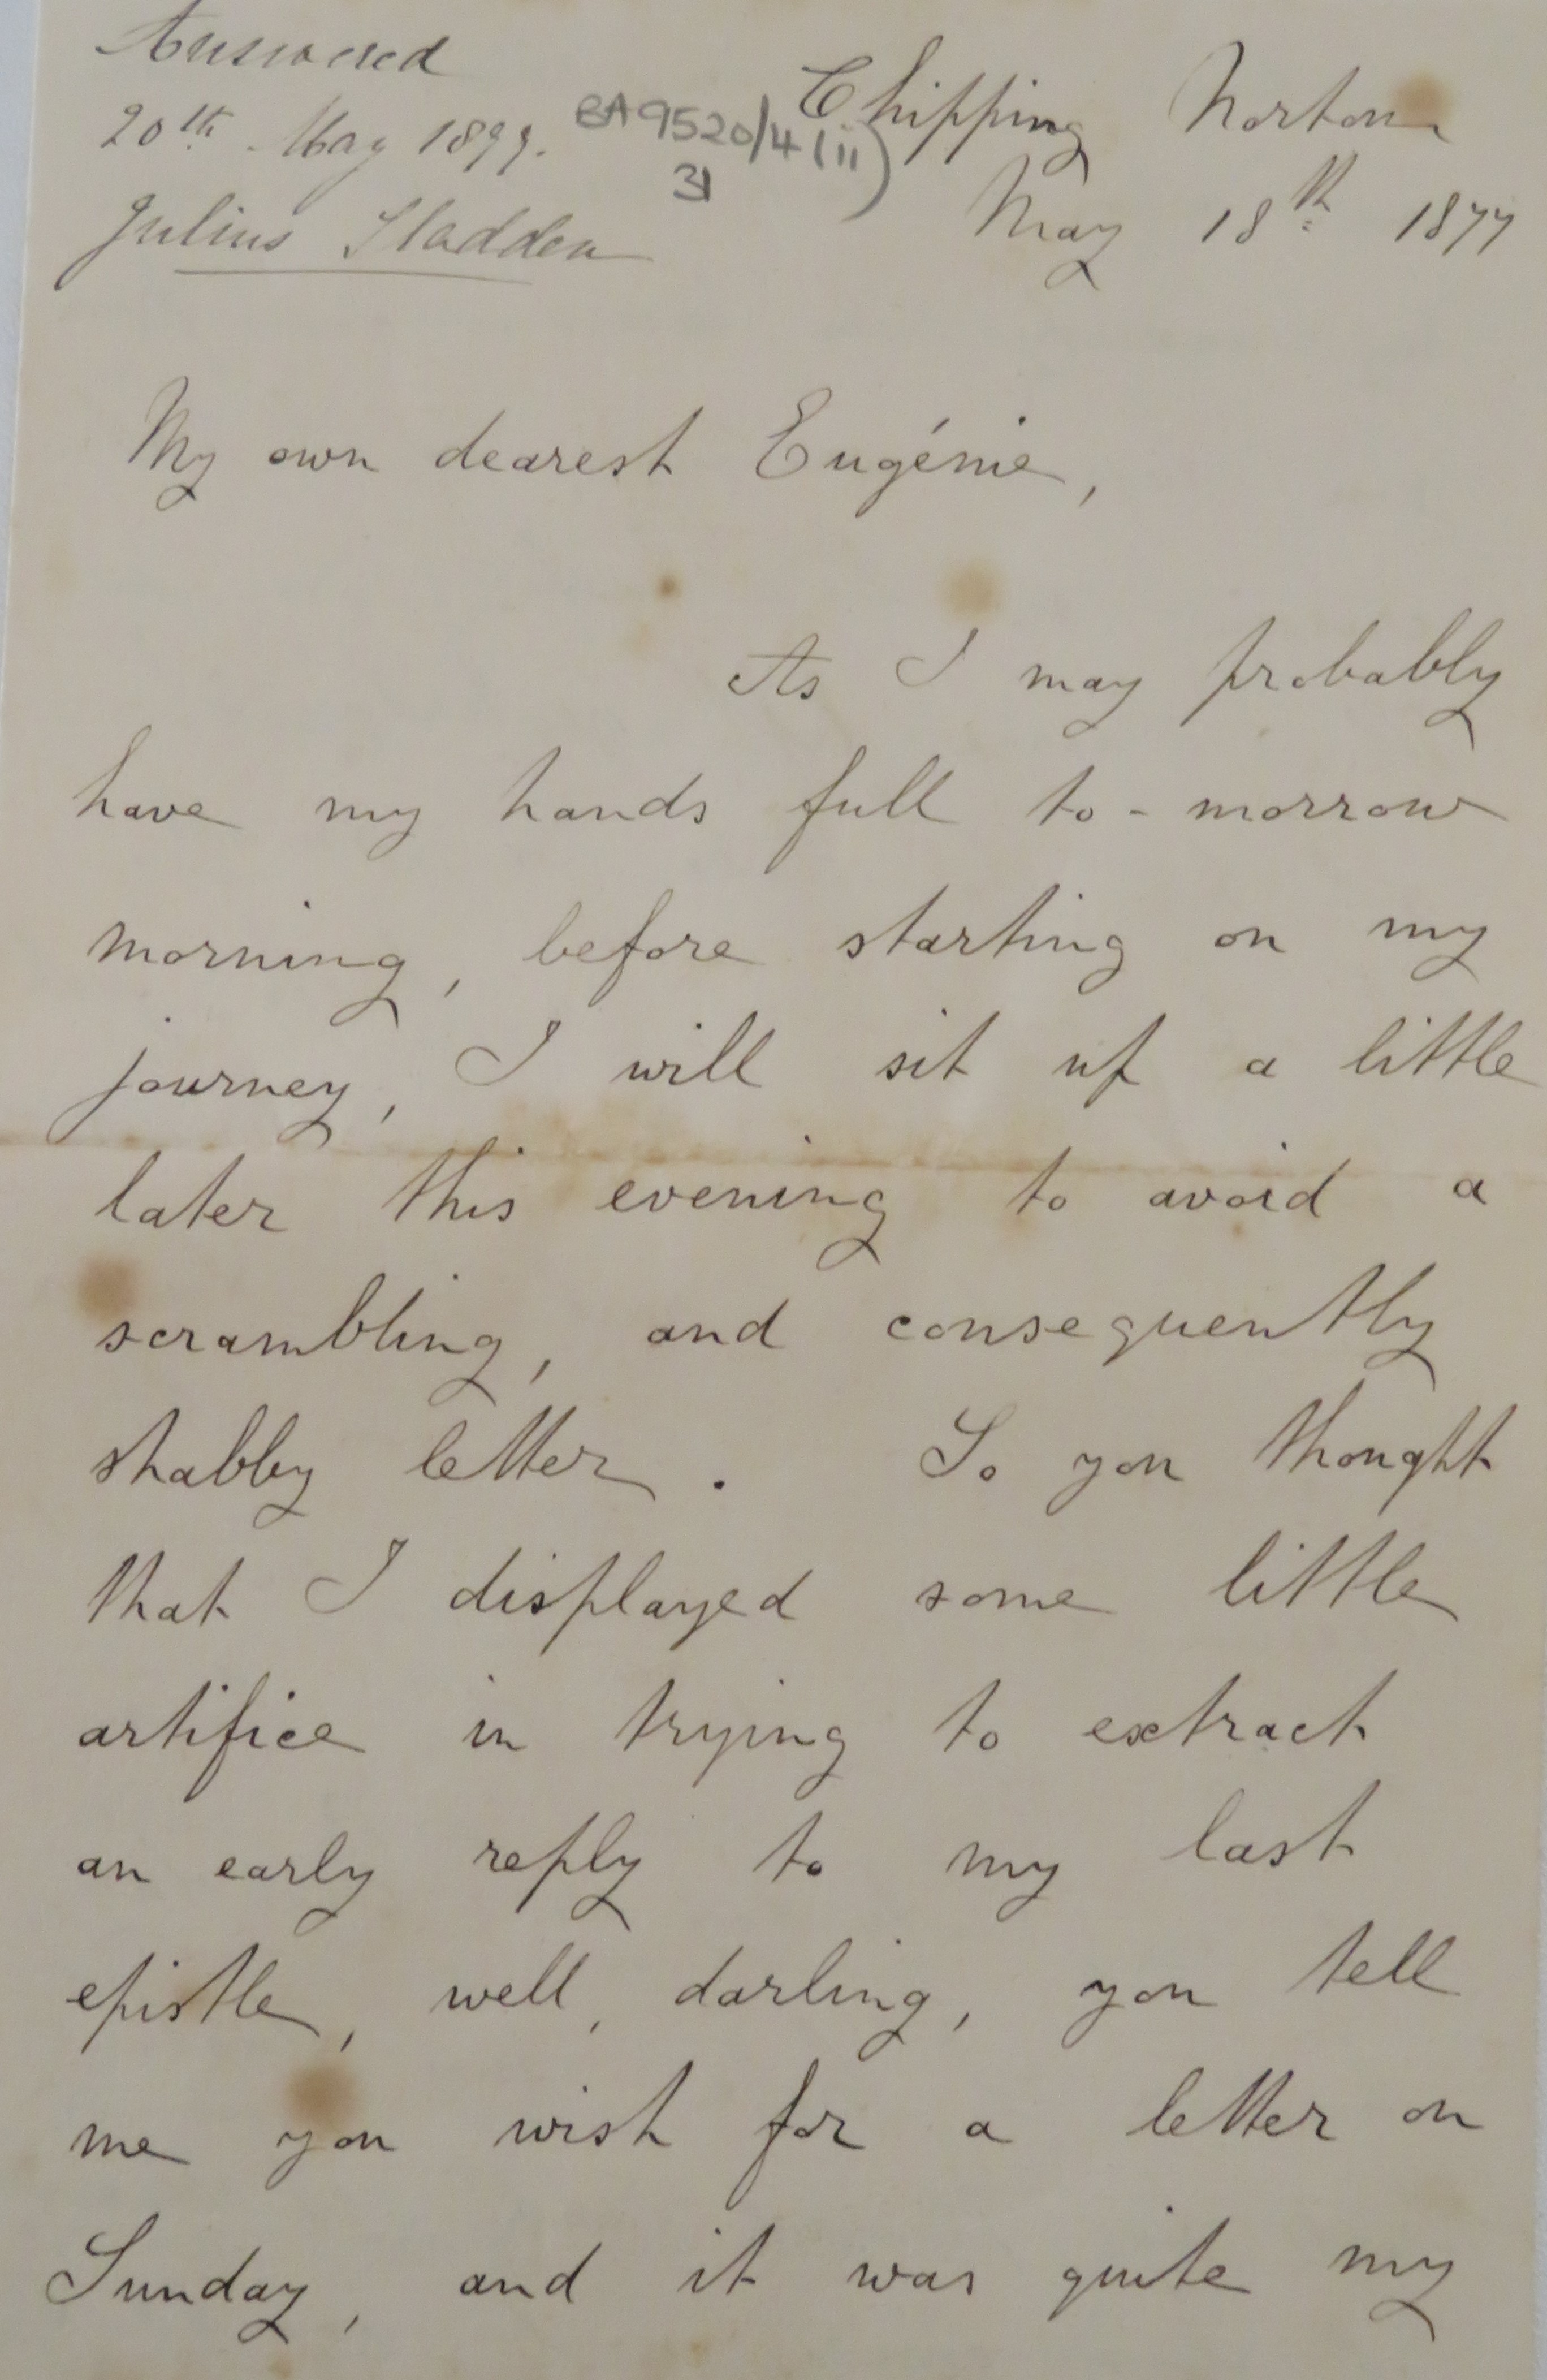 Answered
20th May 1877.
Julius Sladden
BA9520/4(ii)
31
Chipping Norton
May 18th 1877
My own dearest Eugénie,
As I may probably
have my hands full to-morrow
morning, before starting on my
journey, I will sit up a little
later this evening to avoid a
scrambling, and consequently
shabby letter. So you thought
that I displayed some little
artifice in trying to extract
an early reply to my last
epistle, well, darling, you tell
me you wish for a letter on
Sunday, and it was quite my